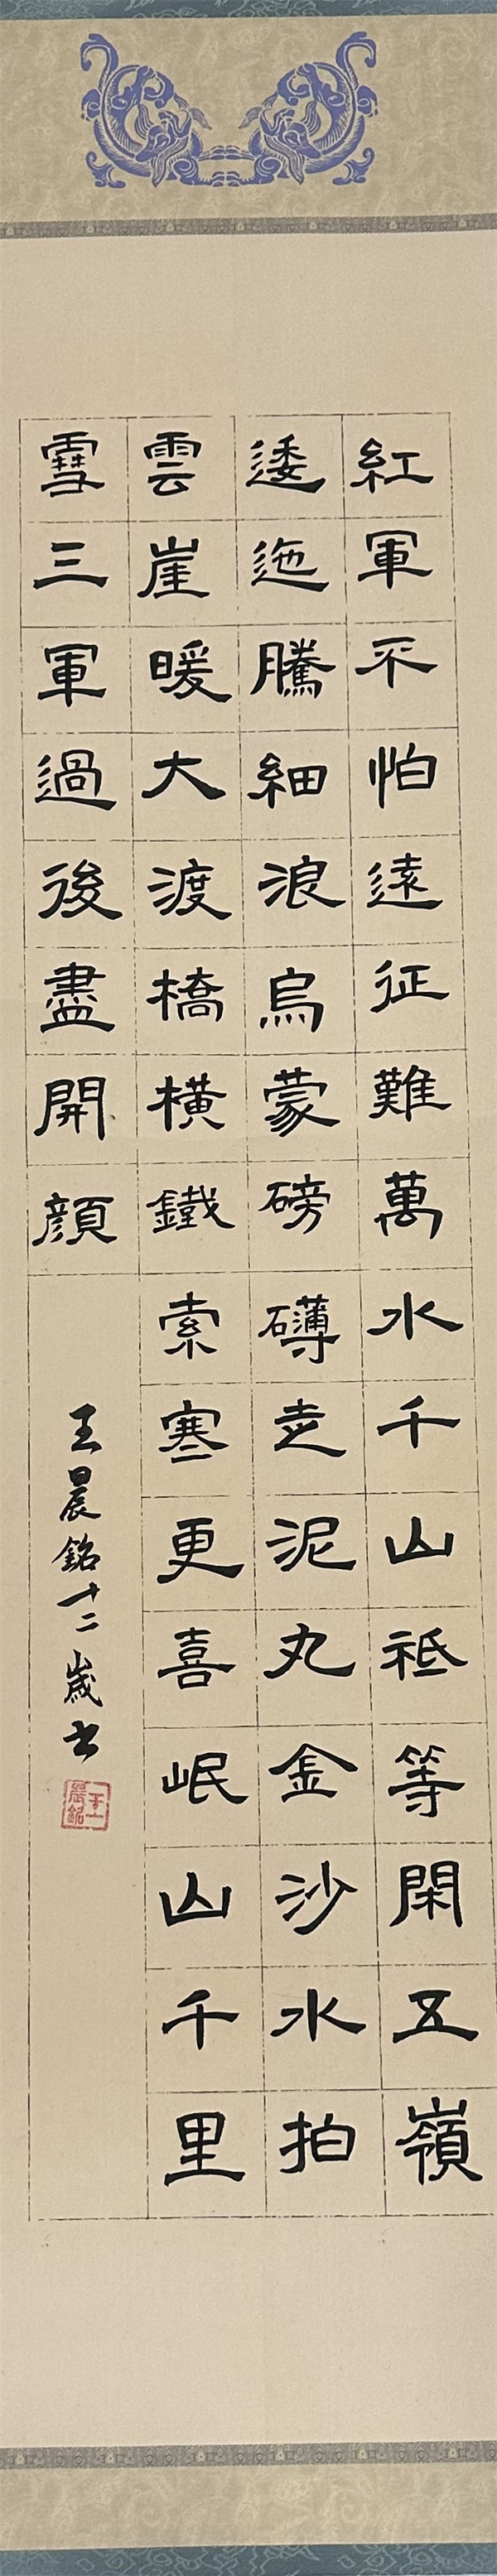 紅軍不怕遠征難萬水千山祗等閑五嶺
逶迤騰細浪烏蒙磅礴走泥丸金沙水拍
雲崖暖大渡橋橫鐵索寒更喜岷山千里
雪三軍過後盡開顏
王晨銘十二歲書
王晨銘